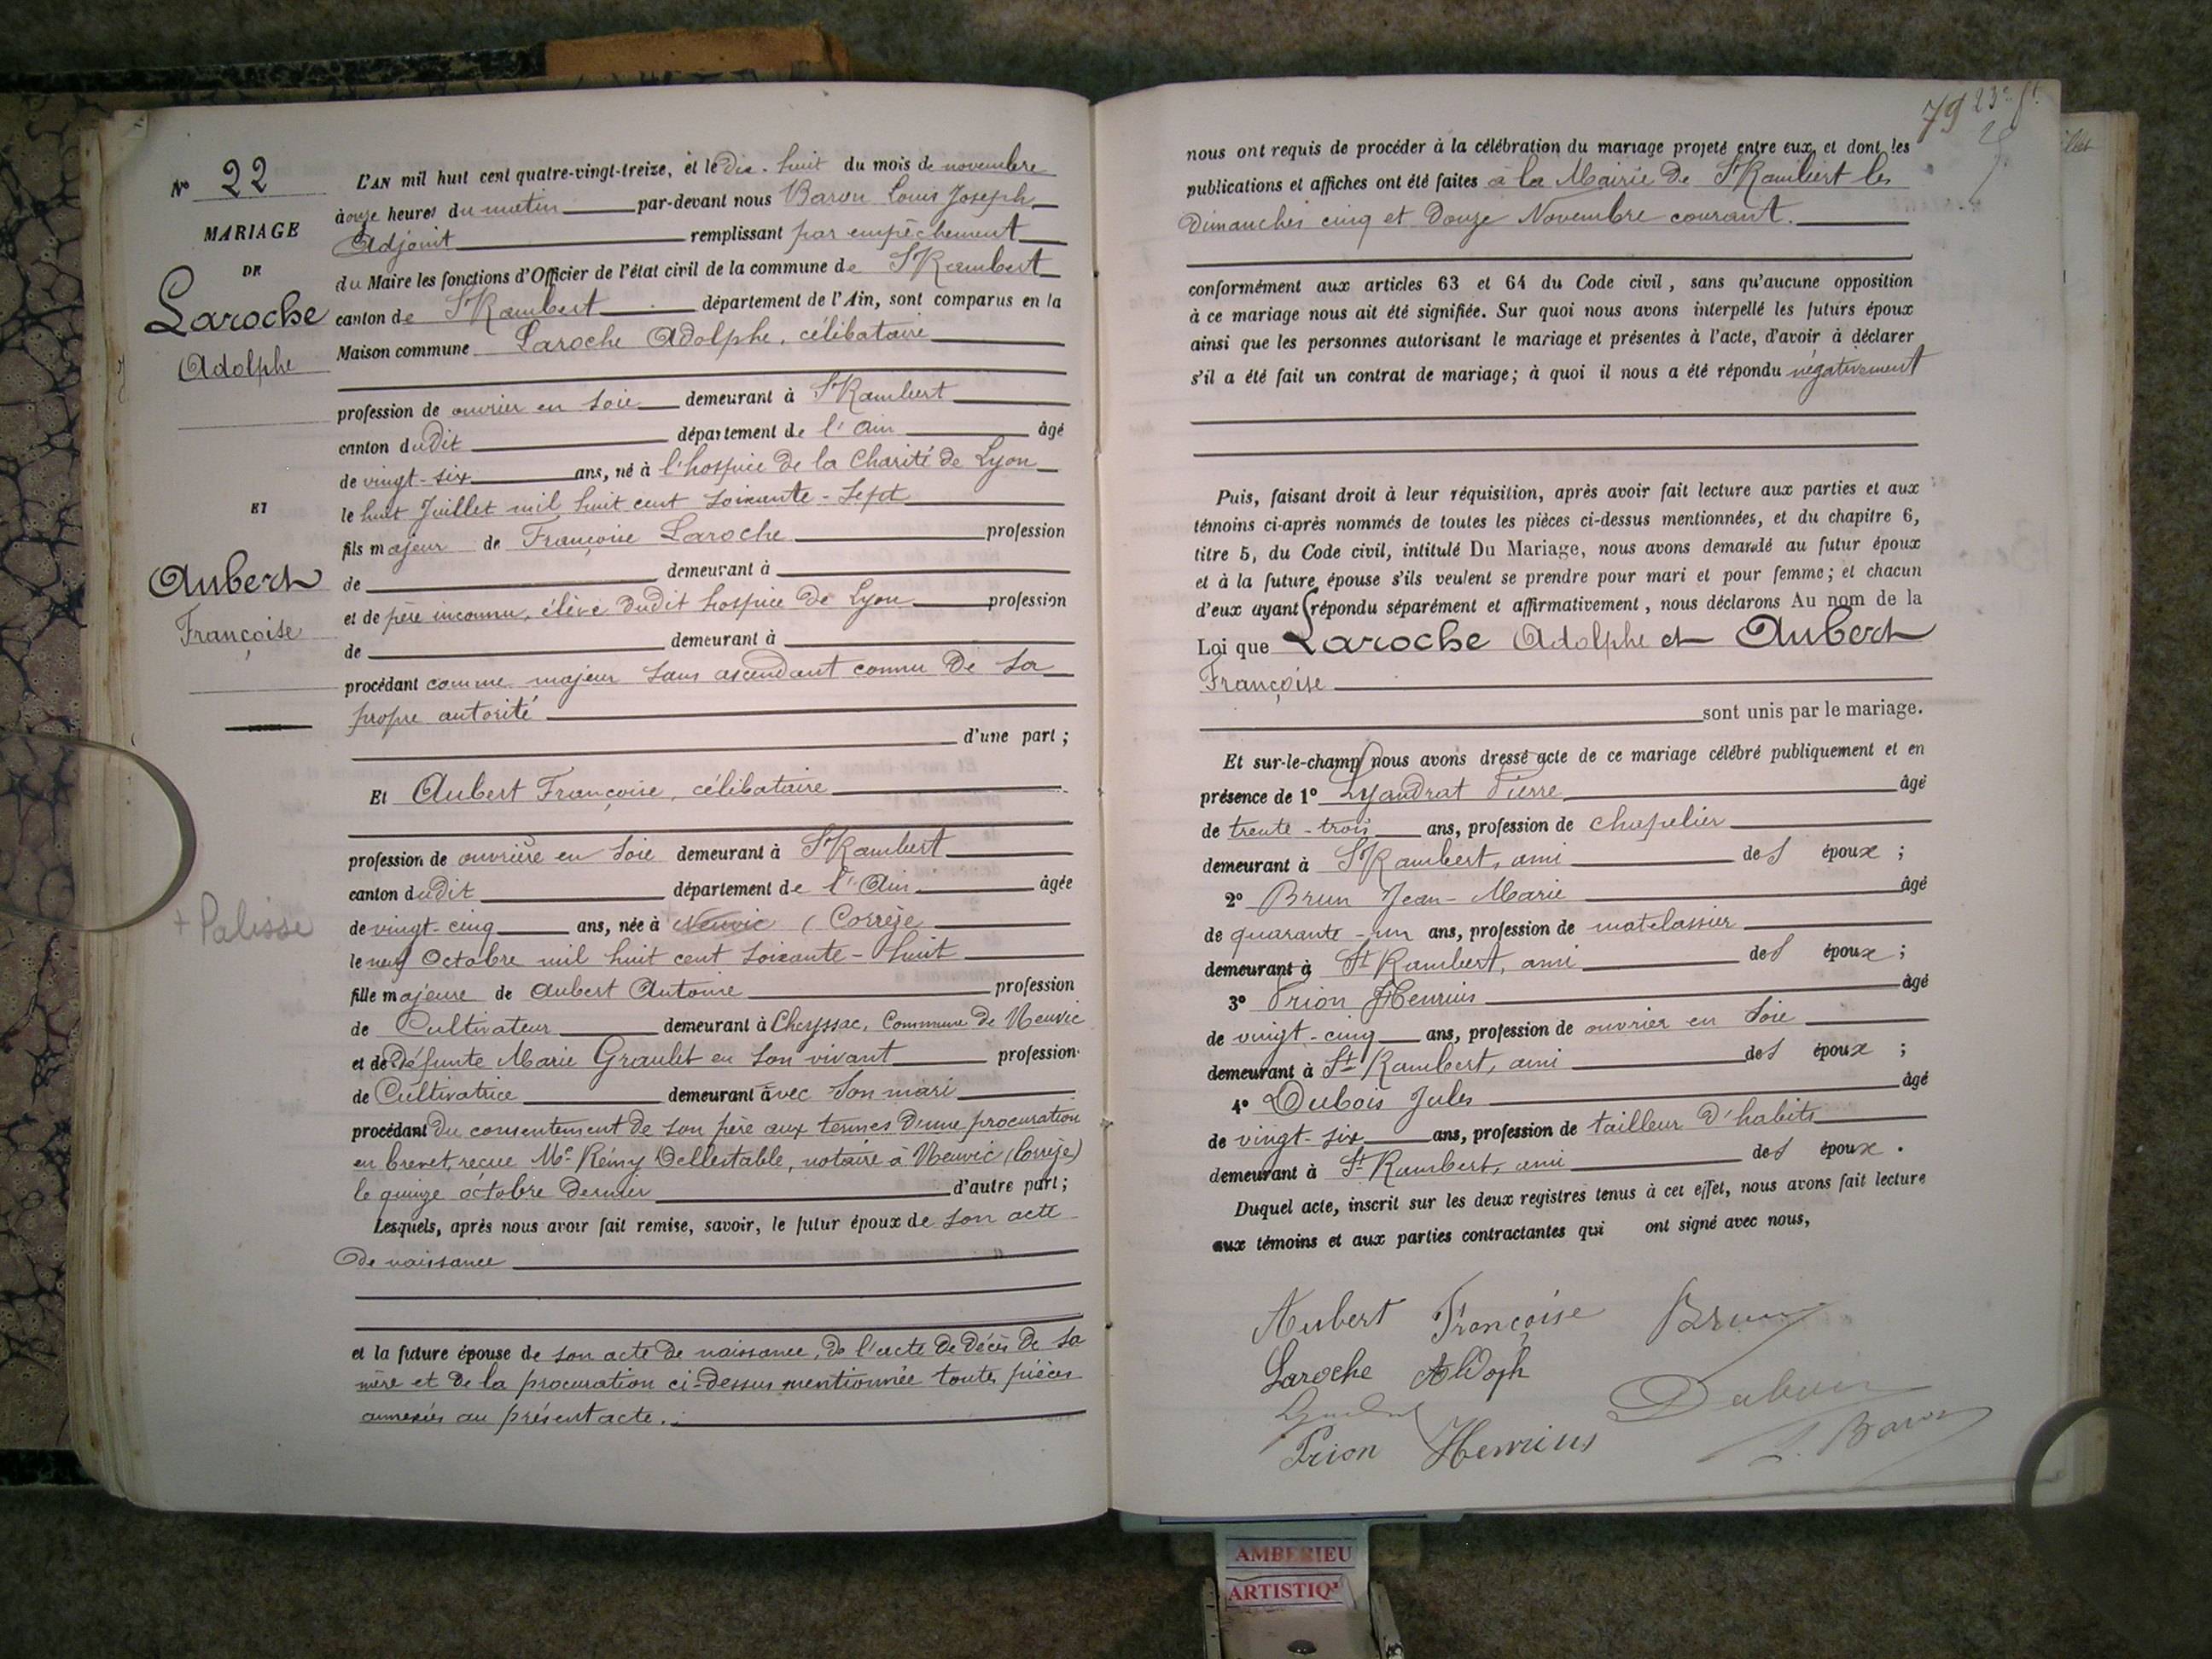 N° 22
MARIAGE
DE
Laroche
Adolphe
ET
Aubert
Françoise
+ Palisse
L'AN mil huit cent quatre-vingt-treize, et le dix-huit du mois de novembre
à onze heures du matin par-devant nous Baron Louis Joseph
Adjoint remplissant par empêchement
du Maire les fonctions d'Officier de l'état civil de la commune de St Rambert
canton de St Rambert département de l'Ain, sont comparus en la
Maison commune Laroche Adolphe, célibataire
profession de ouvrier en soie demeurant à St Rambert
canton dudit département de l'Ain âgé
de vingt-six ans, né à l'hospice de la Charité de Lyon
le huit Juillet mil huit cent soixante-sept
fils majeur de Françoise Laroche profession
de demeurant à
et de père inconnu, élève dudit hospice de Lyon profession
de demeurant à
procédant comme majeur sans ascendant connu de sa
propre autorité
d'une part ;
Et Aubert Françoise, célibataire
profession de ouvrière en soie demeurant à St Rambert
canton dudit département de l'Ain âgée
de vingt-cinq ans, née à Neuvic (Corrèze
le neuf Octobre mil huit cent soixante-huit
fille majeure de Aubert Antoine profession
de Cultivateur demeurant à Cheyssac, Commune de Neuvic
et de défunte Marie Graulet en son vivant profession
de Cultivatrice demeurant avec son mari
procédant du consentement de son père aux termes d'une procuration
en brevet, reçue Me Rémy Dellestable, notaire à Neuvic (Corrèze)
le quinze octobre dernier d'autre part ;
Lesquels, après nous avoir fait remise, savoir, le futur époux de son acte
de naissance
et la future épouse de son acte de naissance, de l'acte de décès de sa
mère et de la procuration ci-dessus mentionnée toutes pièces
annexées au présent acte.
79 23e
nous ont requis de procéder à la célébration du mariage projeté entre eux, et dont les
publications et affiches ont été faites à la Mairie de St Rambert les
Dimanches cinq et Douze Novembre courant.
conformément aux articles 63 et 64 du Code civil, sans qu'aucune opposition
à ce mariage nous ait été signifiée. Sur quoi nous avons interpellé les futurs époux
ainsi que les personnes autorisant le mariage et présentes à l'acte, d'avoir à déclarer
s'il a été fait un contrat de mariage; à quoi il nous a été répondu négativement
Puis, faisant droit à leur réquisition, après avoir fait lecture aux parties et aux
témoins ci-après nommés de toutes les pièces ci-dessus mentionnées, et du chapitre 6,
titre 5, du Code civil, intitulé Du Mariage, nous avons demandé au futur époux
et à la future épouse s'ils veulent se prendre pour mari et pour femme; et chacun
d'eux ayant répondu séparément et affirmativement, nous déclarons Au nom de la
Loi que Laroche Adolphe et Aubert
Françoise
sont unis par le mariage.
Et sur-le-champ nous avons dressé acte de ce mariage célébré publiquement et en
présence de 1° Lyandrat Pierre âgé
de trente-trois ans, profession de chapelier
demeurant à St Rambert, ami des époux ;
2° Brun Jean-Marie âgé
de quarante-un ans, profession de matelassier
demeurant à St Rambert, ami des époux ;
3° Prion Henrius âgé
de vingt-cinq ans, profession de ouvrier en soie
demeurant à St Rambert, ami des époux ;
4° Dubois Jules âgé
de vingt-six ans, profession de tailleur d'habits
demeurant à St Rambert, ami des époux.
Duquel acte, inscrit sur les deux registres tenus à cet effet, nous avons fait lecture
aux témoins et aux parties contractantes qui ont signé avec nous,
Aubert Françoise Brun
Laroche Aldoph
Dubois
Prion Henrius
L. Baron
AMBERIEU
ARTISTIQ